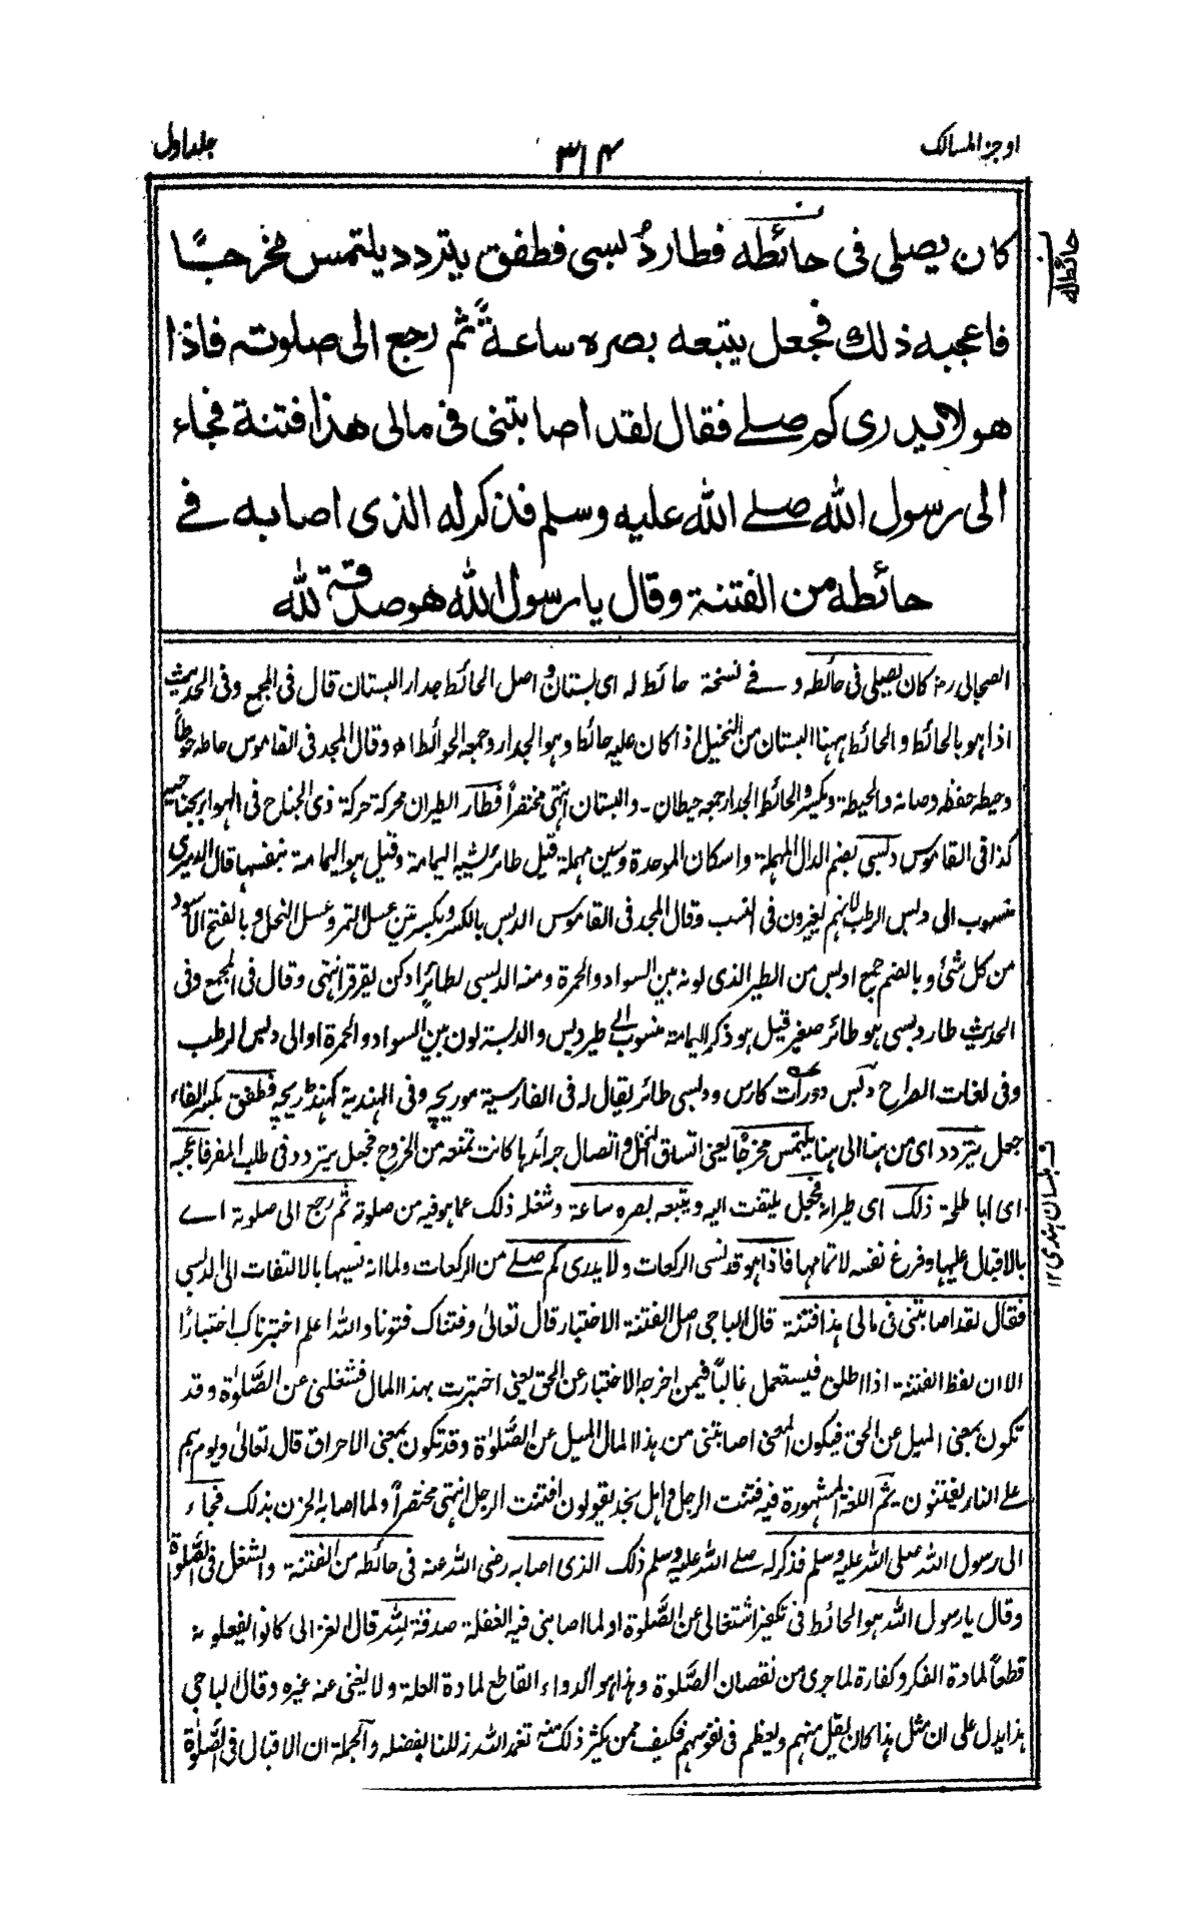 اوجز المسالك
٣١٤
جلد اول
كان يصلى فى حائطه فطار دُبسى فطفق يتردد يلتمس مخرجًا
فاعجبه ذلك فجعل يتبعه بصره ساعةً ثم رجع الى صلوته فاذا
هو لا يدرى كم صلے فقال لقد اصابتنى فى مالى هذا فتنة فجاء
الى رسول الله صلے الله عليه وسلم فذكر له الذى اصابه فے
حائطه من الفتنة وقال يا رسول الله هو صدقة لله
حائط له
الصحابى رض كان يصلى فى حائطه و فے نسخة حائط له اى بستان و اصل الحائط جدار البستان قال فى المجمع وفى الحديث
اذا هو بالحائط و الحائط ههنا البستان من النخيل اذا كان عليه حائط وهو الجدار وجمعه الحوائط اه وقال المجد فى القاموس حاطه حوطاً
وحيطه حفظه وصانه و الحيطة ويكسر و الحائط الجدار جمعه حيطان - و البستان انتهى مختصراً فطار الطيران محركة حركة ذى الجناح فى الهواء بجناحيه
كذا فى القاموس دبسى بضم الدال المهملة و اسكان الموحدة وسين مهملة قيل طائر يشبه اليمامة وقيل هو اليمامة نفسها قال الدميرى
منسوب الى دبس الرطب لانهم يغيرون فى النسب وقال المجد فى القاموس الدبس بالكسر وبكسرتين عسل التمر وعسل النحل و بالفتح الاسود
من كل شئ و بالضم جمع ادبس من الطير الذى لونه بين السواد و الحمرة ومنه الدبسى لطائر ادكن يقرقر انتهى وقال فى المجمع وفى
الحديث طار دبسى هو طائر صغير قيل هو ذكر اليمامة منسوب الى طير دبس و الدبسة لون بين السواد و الحمرة او الى دبس الرطب
وفى لغات الصراح دبس دورات كارس و دبسى طائر يقال له فى الفارسية موريچه وفى الهندية فطفق بكسر الفاء
جعل يتردد اى من هنا الى هنا يلتمس مخرجاً يعنى اتساق النخل و اتصال جرائدها كانت تمنعه من الخروج فجعل يتردد فى طلب المفر فاعجبه
اى ابا طلحة ذلك اى طيرانه فجعل يلتفت اليه و يتبعه بصره ساعة و شغله ذلك عما هو فيه من صلوته ثم رجع الى صلوته اے
بالاقبال عليها و فرغ نفسه لاتمامها فاذا هو قد نسى الركعات و لا يدرى كم صلے من الركعات ولما انه نسيها بالالتفات الى الدبسى
فقال لقد اصابتنى فى مالى هذا فتنة قال الباجى اصل الفتنة الاختبار قال تعالٰى وفتناك فتونا و الله اعلم اختبرناك اختبارًا
الا ان لفظ الفتنة اذا اطلق فيستعمل غالباً فيمن اخرجه الاختبار عن الحق يعنى اختبرت بهذا المال فشغلنى عن الصَّلوٰة وقد
تكون بمعنى الميل عن الحق فيكون المعنى اصابتنى من هذا المال الميل عن الصَّلوٰة وقد تكون بمعنى الاحراق قال تعالٰى ويوم هم
على النار يفتنون - ثم اللغة المشهورة فيه فتنت الرجل و اهل نجد يقولون افتنت الرجل انتهى مختصراً و لما اصابه الحزن بذلك فجاء
الى رسول الله صلى الله عليه وسلم فذكر له صلے الله عليه وسلم ذلك الذى اصابه رضى الله عنه فى حائطه من الفتنة و الشغل فى الصَّلوٰة
وقال يا رسول الله هو الحائط فى تكفير اشتغالى عن الصَّلوٰة او لما اصابنى فيه الغفلة صدقة لِله قال الغزالى كانوا يفعلونه
قطعاً لمادة الفكر وكفارة لما جرى من نقصان الصَّلوٰة وهذا هو الدواء القاطع لمادة العلة و لا يغنى عنه غيره وقال الباجى
هذا يدل على ان مثل هذا كان يقل منهم و يعظم فى نفوسهم فكيف ممن يكثر ذلك منه تغمد الله زللنا بفضله و الجملة ان الاقبال فى الصَّلوٰة